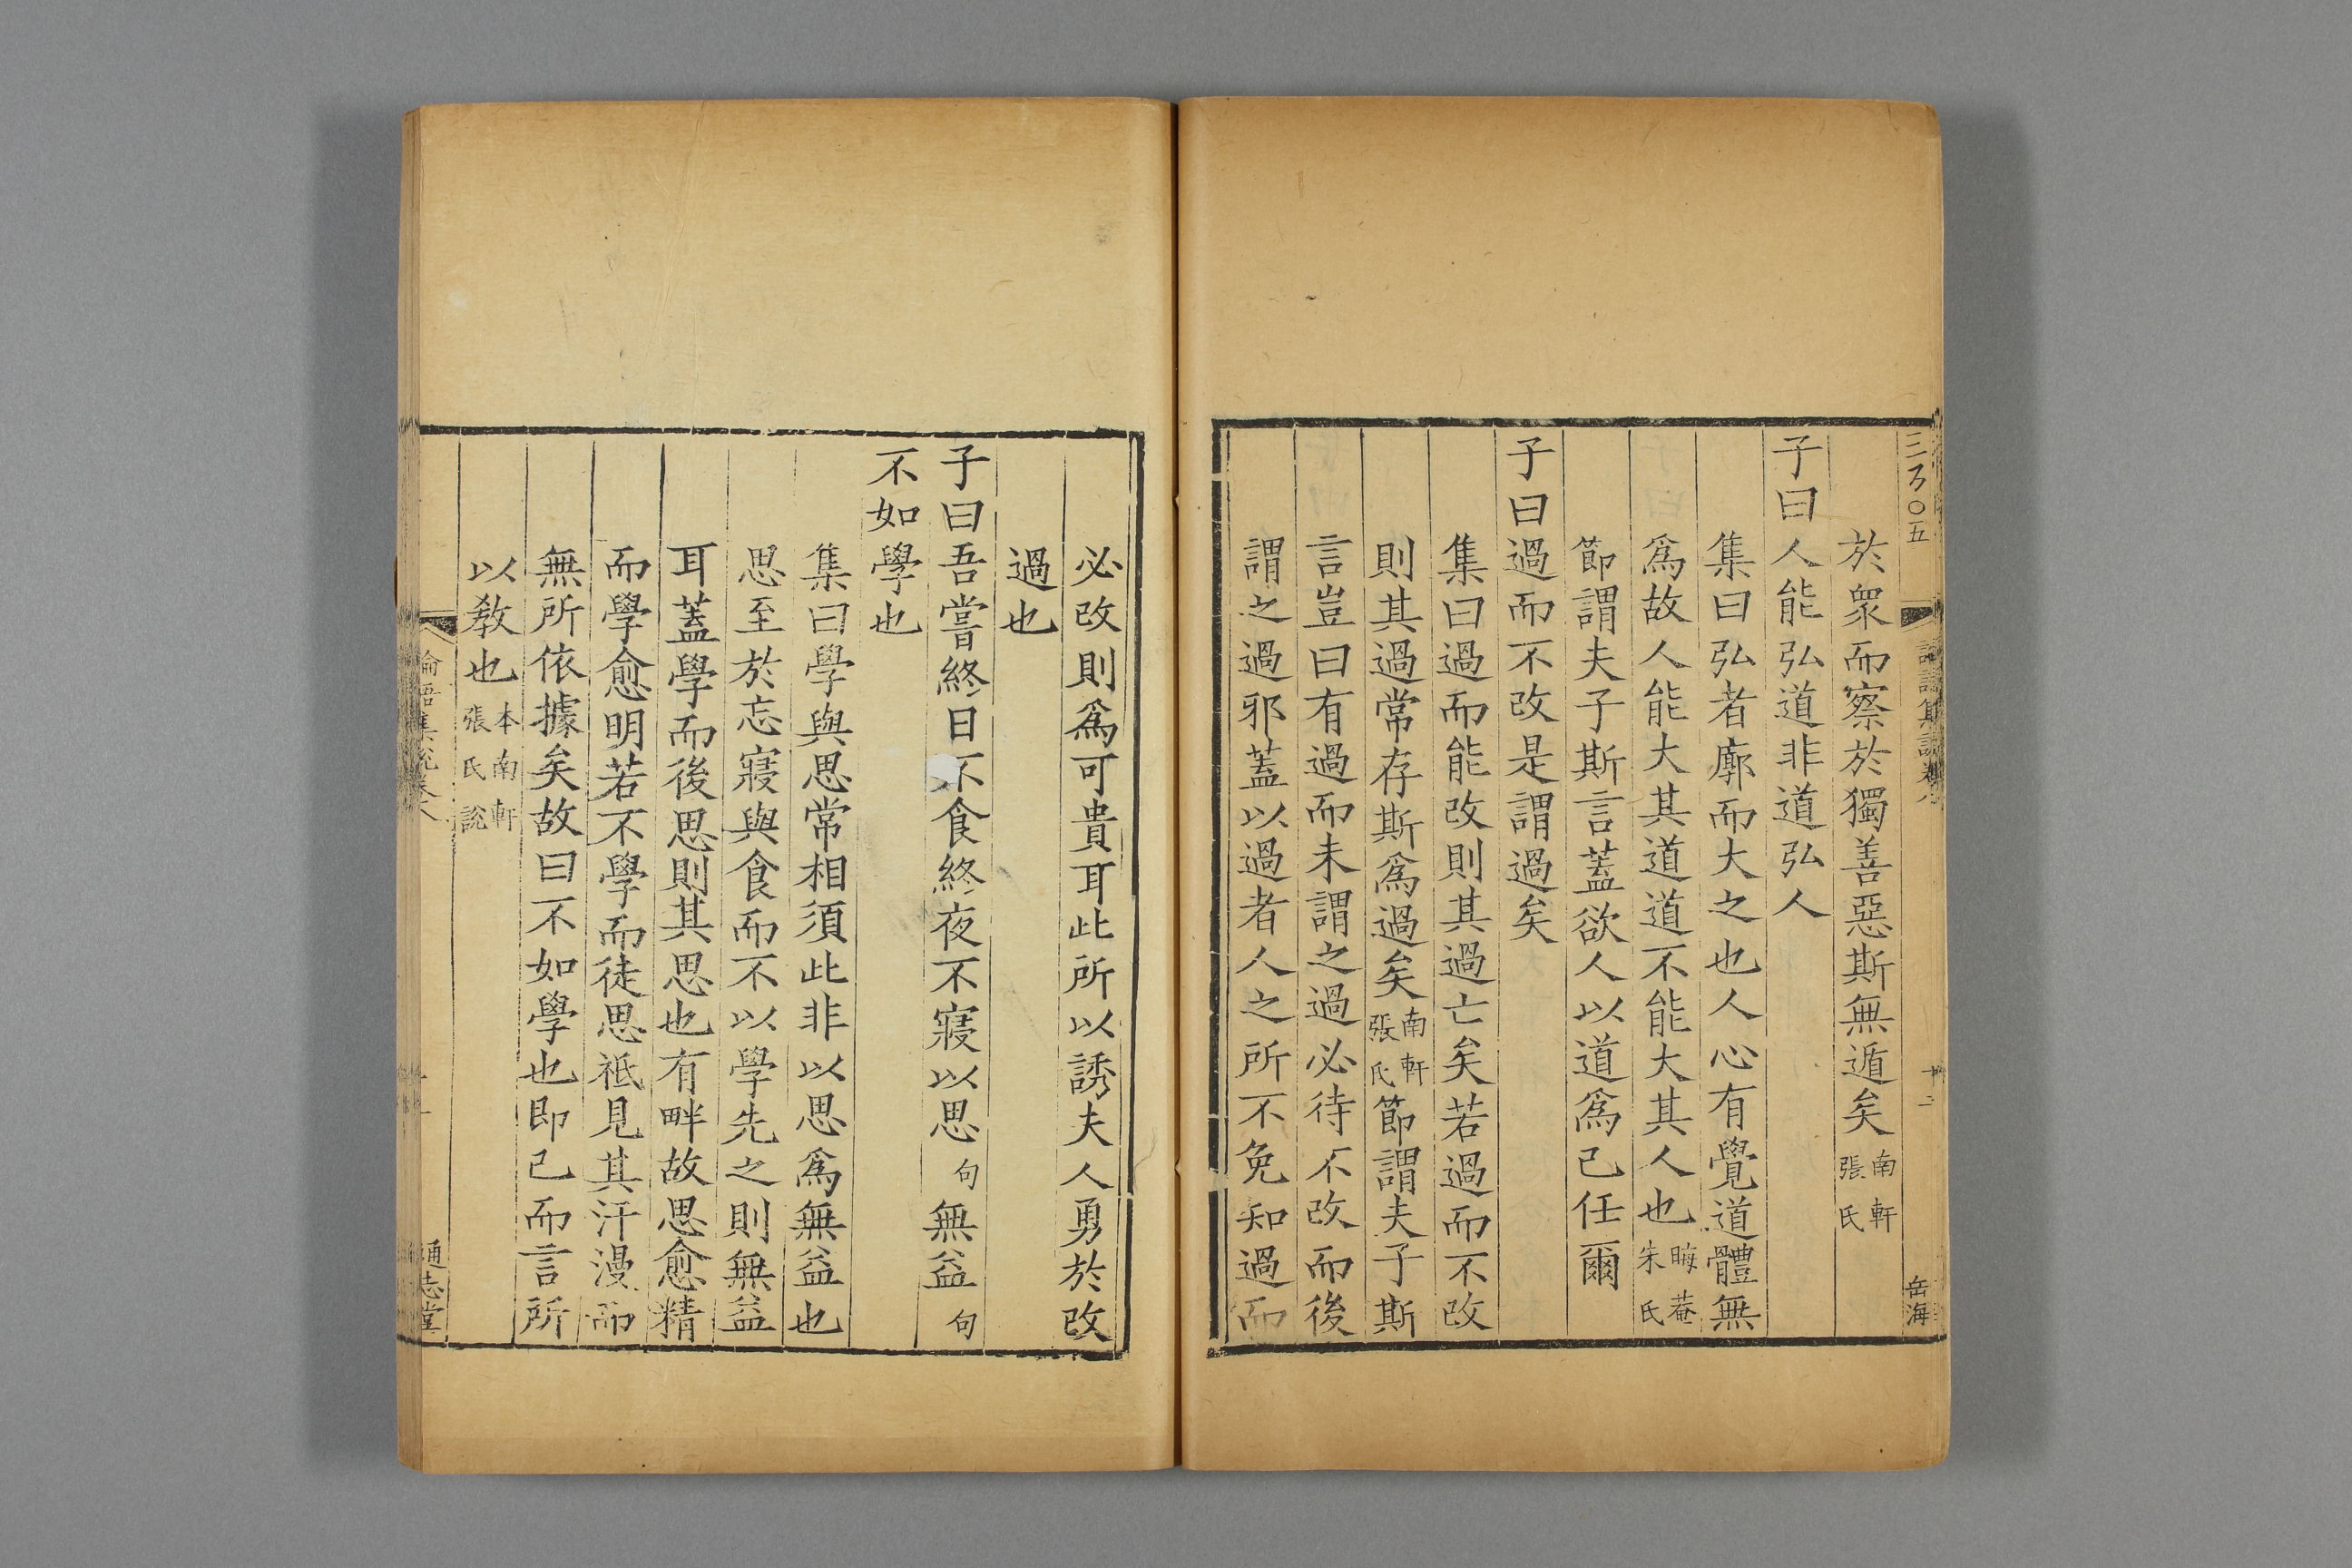 於衆而察於獨善惡斯無遁矣南軒張氏
子曰人能弘道非道弘人
集曰弘者廓而大之也人心有覺道體無
爲故人能大其道道不能大其人也晦菴朱氏
節謂夫子斯言蓋欲人以道爲己任爾
子曰過而不改是謂過矣
集曰過而能改則其過亡矣若過而不改
則其過常存斯爲過矣南軒張氏節謂夫子斯
言豈曰有過而未謂之過必待不改而後
謂之過邪蓋以過者人之所不免知過而
必改則爲可貴耳此所以誘夫人勇於改
過也
子曰吾嘗終日不食終夜不寢以思句無益句
不如學也
集曰學與思常相須此非以思爲無益也
思至於忘寢與食而不以學先之則無益
耳蓋學而後思則其思也有畔故思愈精
而學愈明若不學而徒思祗見其汗漫而
無所依據矣故曰不如學也即己而言所
以敎也本南軒張氏說
論語集說卷八
通志堂
岳海